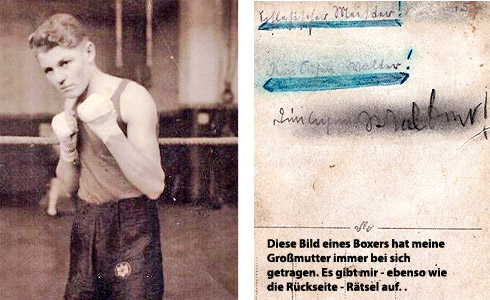 Schlesischer Meister!
Walter!
Diese Bild eines Boxers hat meine
Großmutter immer bei sich
getragen. Es gibt mir - ebenso wie
die Rückseite - Rätsel auf. .